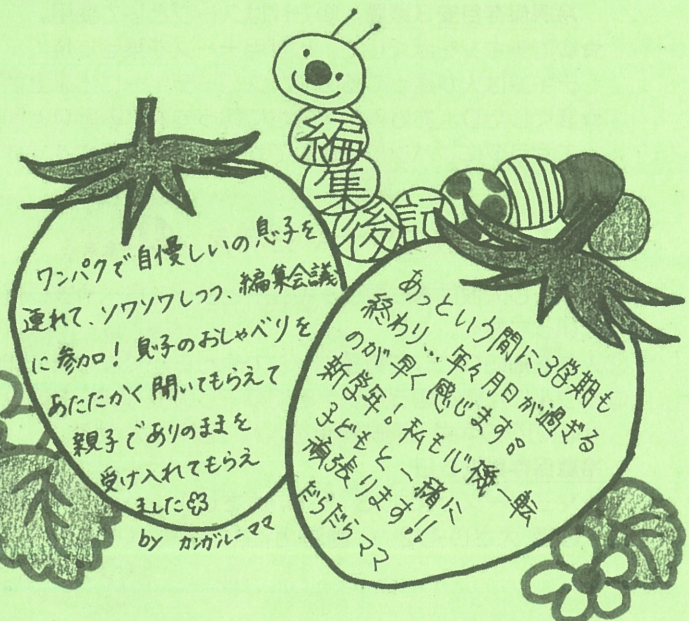 編集後記
ワンパクで自慢しいの息子を
連れて、ソワソワしつつ、編集会議
に参加！息子のおしゃべりを
あたたかく聞いてもらえて
親子でありのままを
受け入れてもらえ
ました
by カンガルーママ
あっという間に3学期も
終わり…年々月日が過ぎる
のが早く感じます。
新学年！私も心機一転
子どもと一緒に
頑張ります!!
だらだらママ